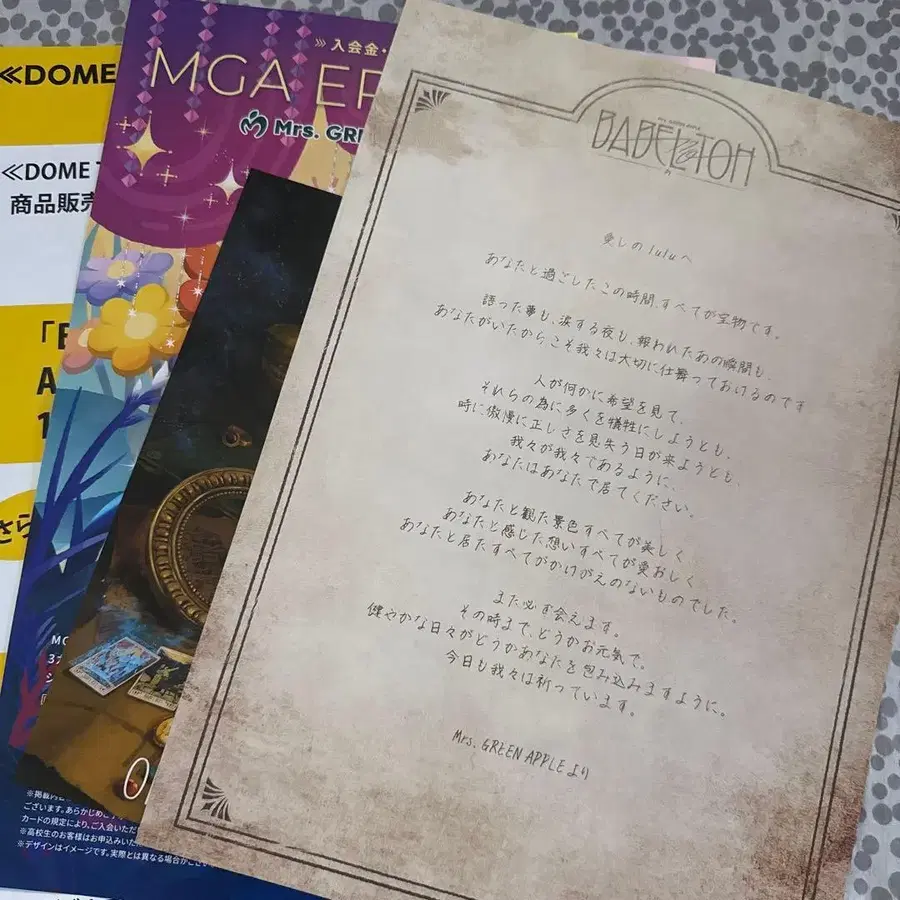 ≪DOME
≪DOME T
商品販売
「B
A
1
さら
入会金・
MGA
Mrs. GRE
MG
※高校生のお客様はお申込みいた
※デザインはイメージです。実際とは異なる場合がござい
ございます。あらかじめご
カードの規定により、ご入会いただ
Mrs. GREEN APPLE
BABEL no TOH
愛しのluluへ
あなたと過ごしたこの時間、すべてが宝物です。
語った夢も、涙する夜も、報われたあの瞬間も、
あなたがいたから、こそ我々は大切に仕舞っておけるのです
人が何かに希望を見て、
それらの為に多くを犠牲にしようとも、
時に傲慢に正しさを見失う日が来ようとも、
我々が我々であるように、
あなたはあなたで居てください。
あなたと観た景色すべてが美しく
あなたと感じた想いすべてが愛おしく
あなたと居たすべてがかけがえのないものでした。
また必ず会えます。
その時まで、どうかお元気で。
健やかな日々がどうかあなたを包み込みますように。
今日も我々は祈っています。
Mrs. GREEN APPLEより